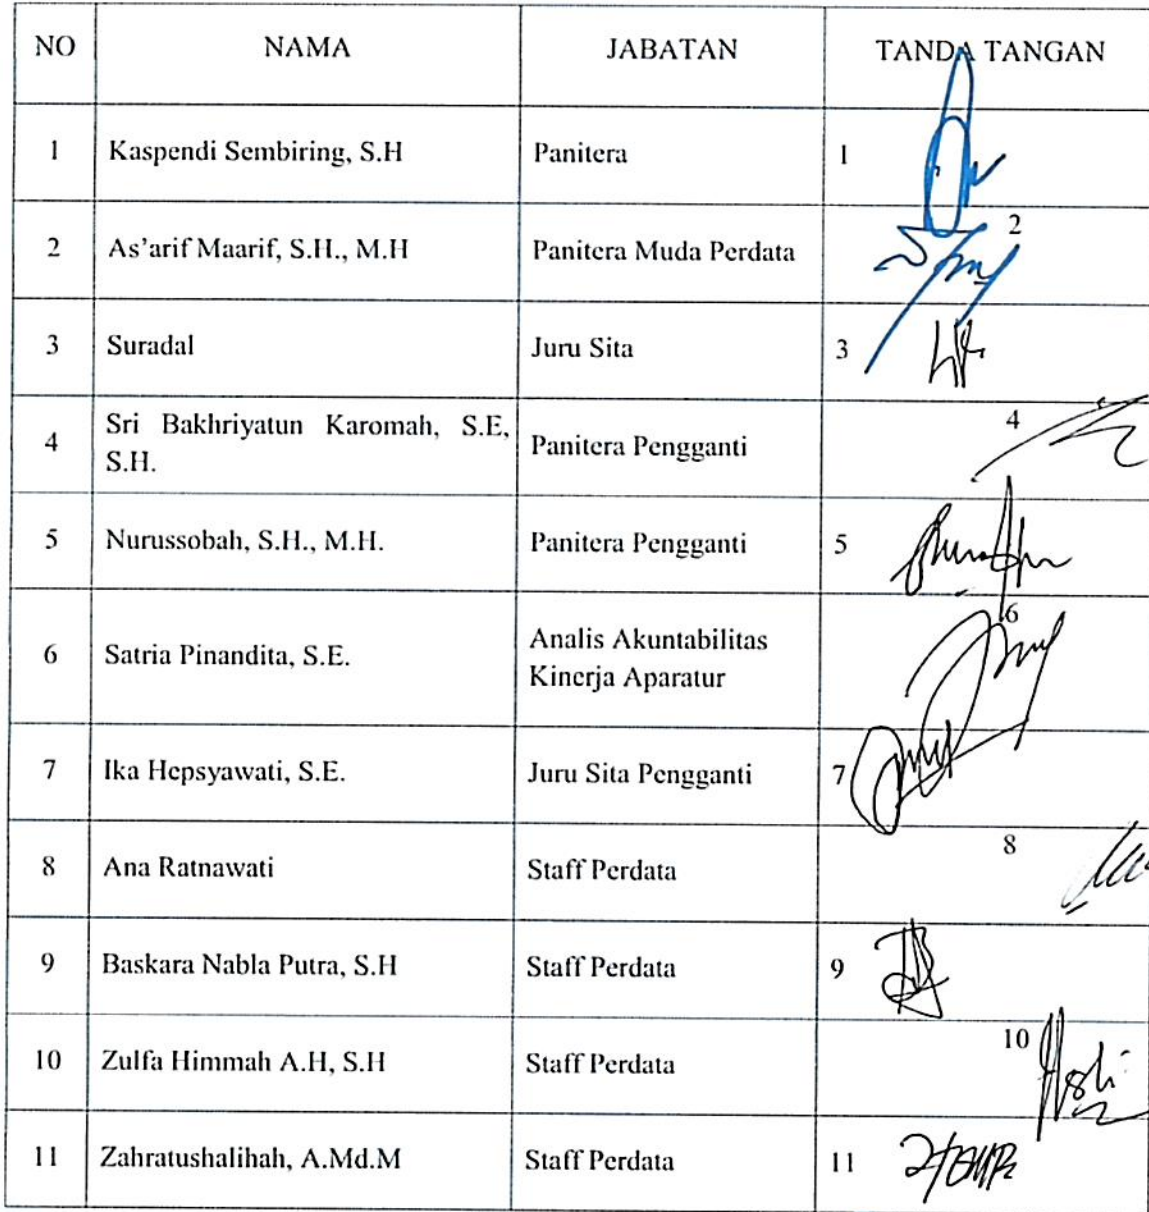 NO NAMA JABATAN TANDA TANGAN
1 Kaspendi Sembiring, S.H Panitera 1
2 As'arif Maarif, S.H., M.H Panitera Muda Perdata 2
3 Suradal Juru Sita 3
4 Sri Bakhriyatun Karomah, S.E, Panitera Pengganti 4
S.H.
5 Nurussobah, S.H., M.H. Panitera Pengganti 5
6 Satria Pinandita, S.E. Analis Akuntabilitas 6
Kinerja Aparatur
7 Ika Hepsyawati, S.E. Juru Sita Pengganti 7
8 Ana Ratnawati Staff Perdata 8
9 Baskara Nabla Putra, S.H Staff Perdata 9
10 Zulfa Himmah A.H, S.H Staff Perdata 10
11 Zahratushalihah, A.Md.M Staff Perdata 11